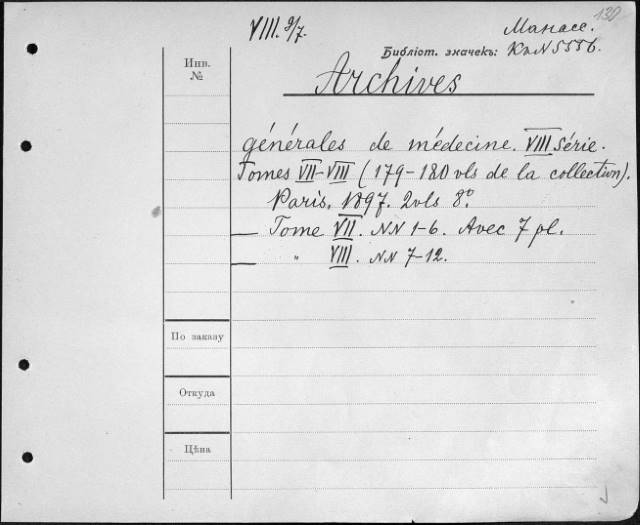 130
VIII. 9/7.
Манасс.
Библіот. значекъ: Кк N 5556.
Инв.
№
Archives
générales de médecine. VIII Série.
Tomes VII-VIII (179-180 vls de la collection).
Paris. 1897. 2vls 8.°
— Tome VII. NN 1-6. Avec 7 pl.
— " VIII. NN 7-12.
По заказу
Откуда
Цѣна